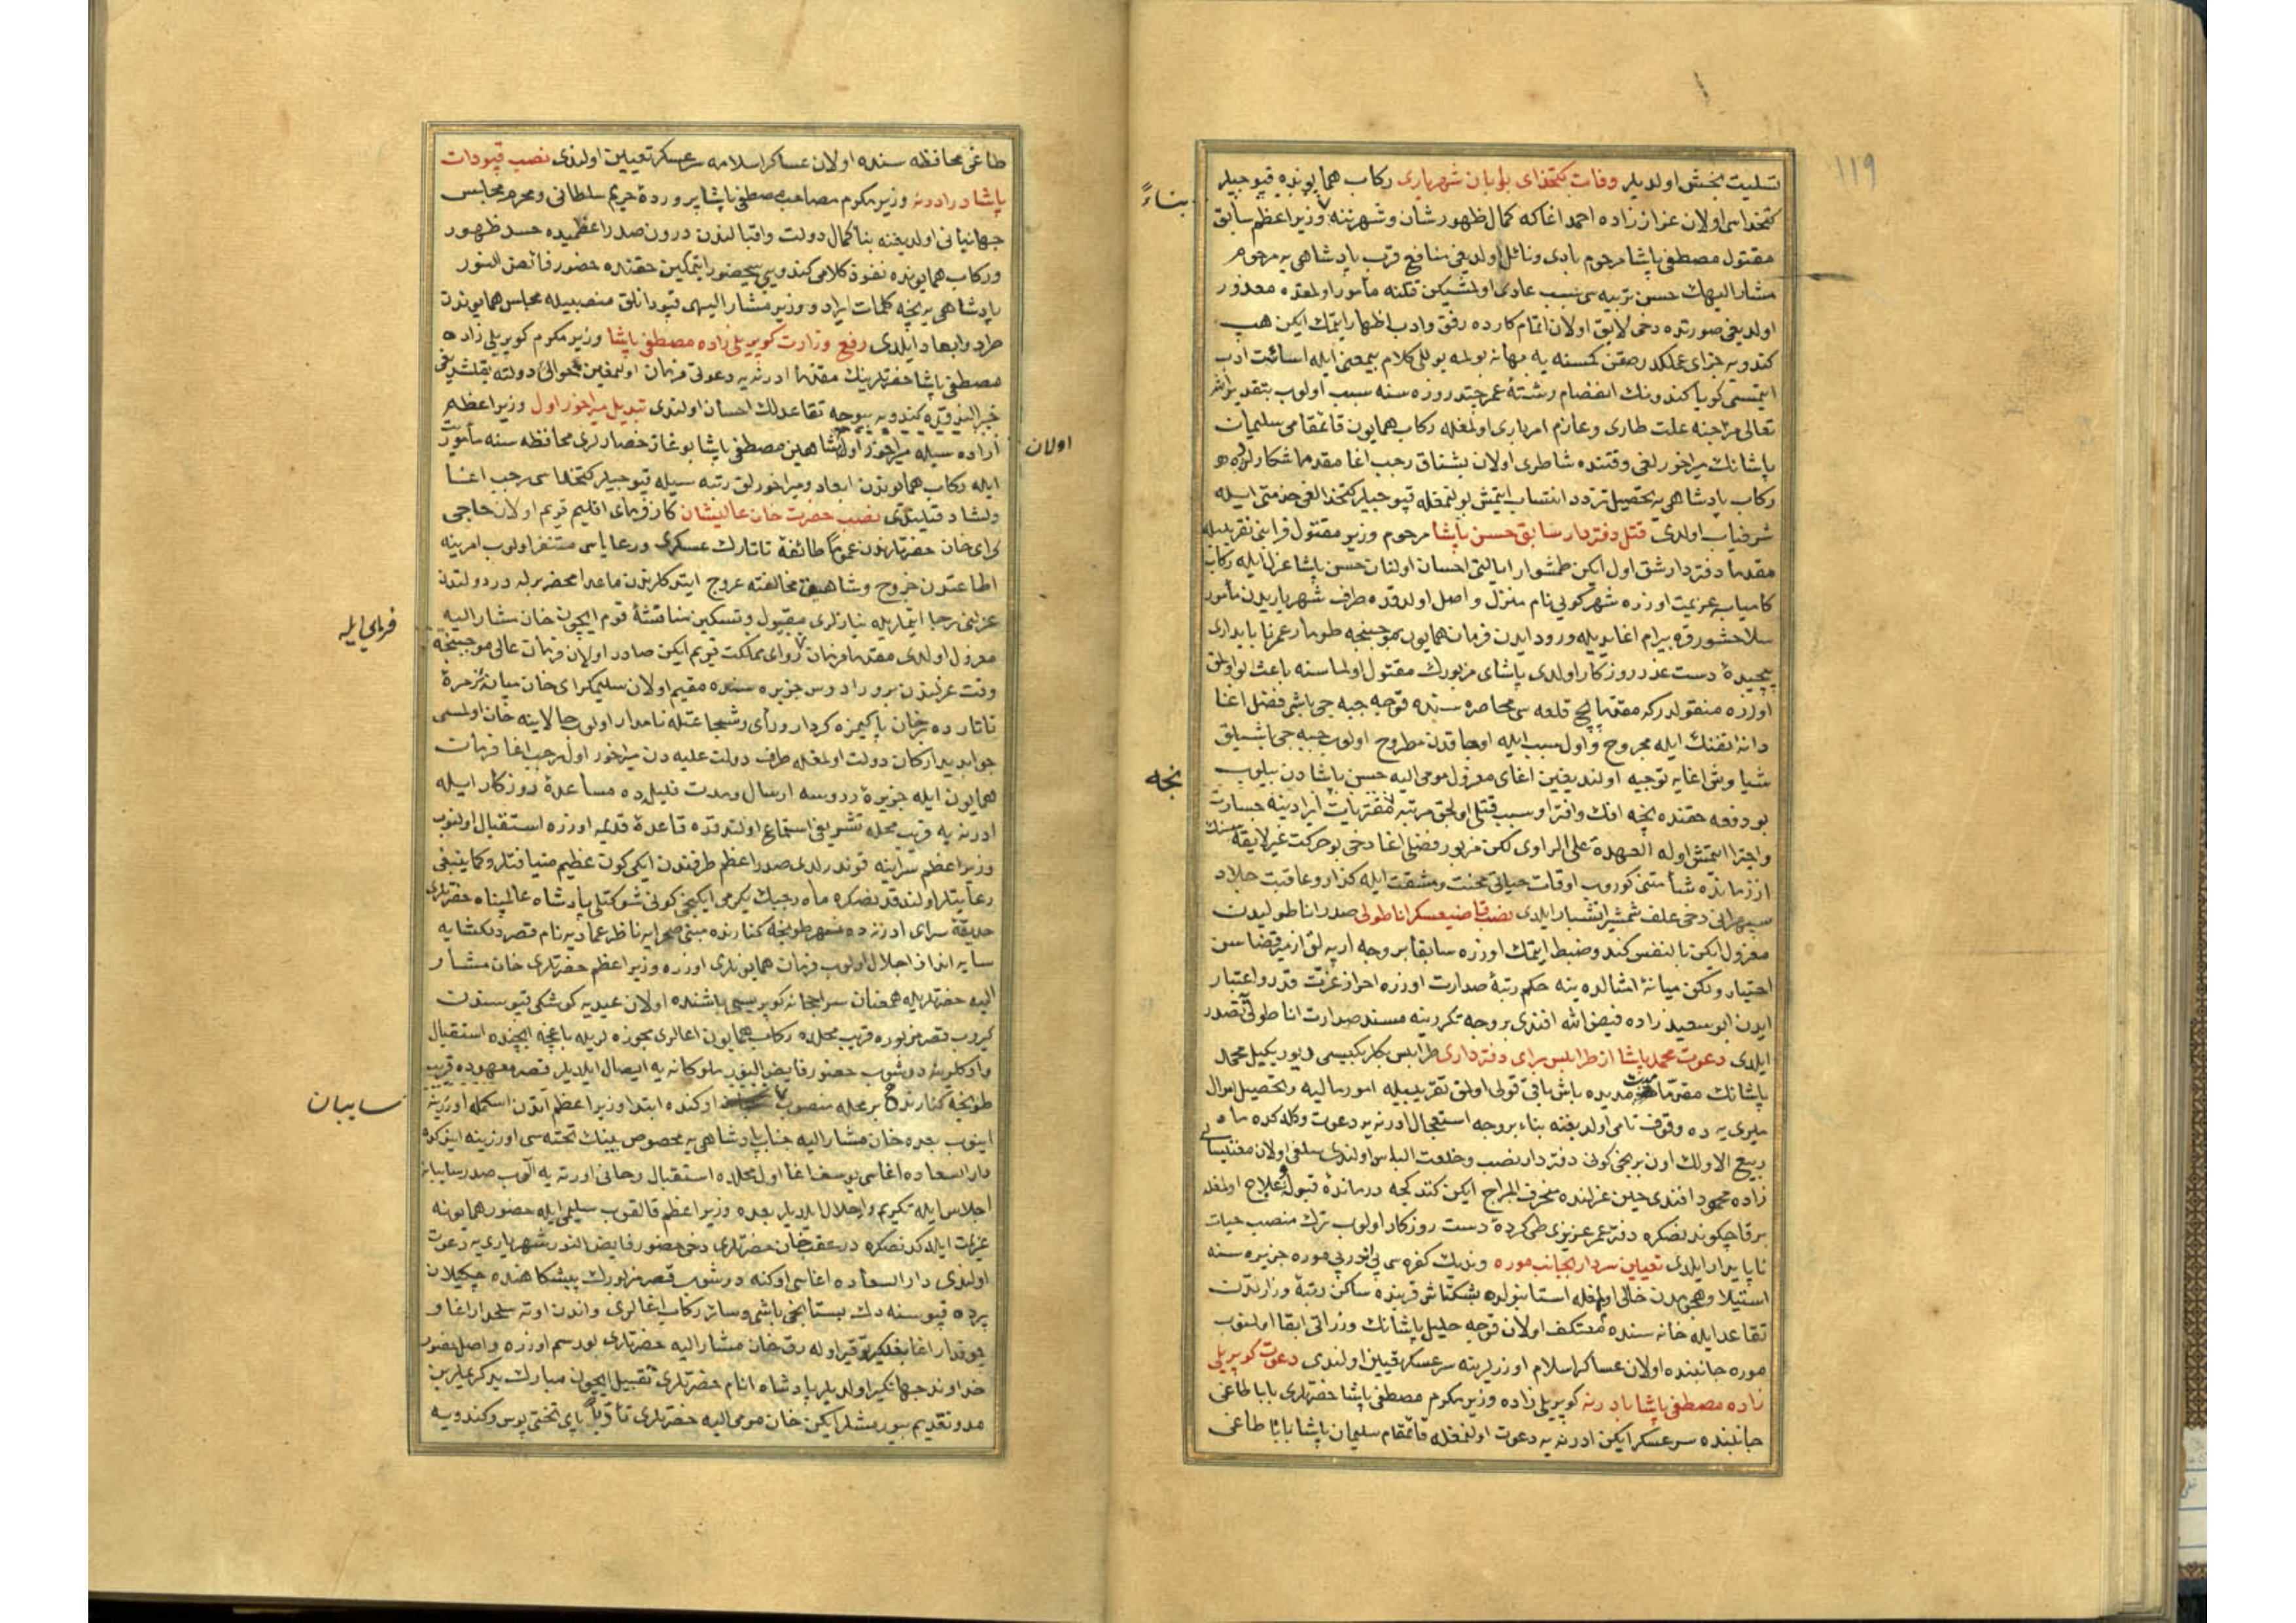 ١١٩
تسلیت بخش اولدیلر وفات کتخدای بوابان شهریاری رکاب همایونده قپوجیلر
بناءً
کتخداسی اولان عزاززاده احمد اغا که کمال ظهور شان و شهرتنه وزیر اعظم سابق
مقتول مصطفی پاشا مرحوم بادی و نائل اولدیغی منافع قرب پادشاهی یه مرحوم
مشار الیهك حسن تربیه سی سبب عادی اولمشیکن نکنه مأمور اولمقده معذور
اولدیغی صورتده دخی لایق اولان اتمام کارده رفق و ادب اظهار ایتمك ایکن هپ
کندویه جزای عملکدر صقن کمسنه یه بهانه بولمه بوللی کلام بیمعنی ایله اسائت ادب
ایتمشدی کویا کندونك انفصام رشتۀ عمر چند روزه سنه سبب اولوب بتقدیر الله
تعالی مزاجنه علت طاری و عازم امر باری اولمغله رکاب همایون قائمقامی سلیمان
پاشانك میراخورلغی وقتنده شاطری اولان بشناق رجب اغا مقدما شکارلرده
رکاب پادشاهی یه تحصیل تردد انتساب ایتمش بولنمغله قپوجیلر کتخدالغی خدمتی ایله
شرفیاب اولدی قتل دفتردار سابق حسن پاشا مرحوم وزیر مقتول قرابنی تقریبیله
مقدما دفتردار شق اول ایکن طمشوار ایالتی احسان اولنان حسن پاشا عزل ایله رکاب
کامیابه عزیمت اوزره شهرکویی نام منزله واصل اولدقده طرف شهریاریدن مأمور
سلاحشور قره بیرام اغا یدیله ورود ایدن فرمان همایون موجبنجه طومار عمر ناپایداری
پیچیدۀ دست غدر روزکار اولدی پاشای مزبورك مقتول اولماسنه باعث بو اولمق
اوزره منقولدر که مقدما لح قلعه سی محاصره سنده قوجه جبه جی باشی فضلی اغا
دانۀ تفنك ایله مجروح و اول سبب ایله اوجاقدن مطروح اولوب جبه جی باشیلق
نجه
شیاوش اغایه توجیه اولندیغین اغای معزول مومی الیه حسن پاشادن بیلوب
بو دفعه حقنده نجه افك و افترا و سبب قتلی اولجق مرتبه مفتریات ایرادینه جسارت
و اجترا ایتمش اوله العهدة علی الراوی لکن مزبور فضلی اغا دخی بو حرکت غیر لایقه سنك
از زمانده شأمتنی کوروب اوقات حیاتی محنت و مشقت ایله کذار و عاقبت جلاد
سپهر انی دخی علف شمشیر اتشبار ایلدی نصب قاضیعسکر اناطولی صدر اناطولیدن
معزول ایکن بالنفس کندو ضبط ایتمك اوزره سابقا بر وجه ارپه لق ازمیر قضاسن
اختیار و لکن میانۀ امثالده ینه حکم رتبۀ صدارت اوزره احراز عزت قدر و اعتبار
ایدن ابو سعید زاده فیض الله افندی بر وجه تکرر ینه مسند صدارت اناطولی یه تصدر
ایلدی دعوت محمد پاشا از طرابلس برای دفترداری طرابلس بکلربکیسی دیوریکیلی محمد
پاشانك مقدما مدت مدیده باش باقی قولی اولمق تقریبیله امور مالیه و تحصیل اموال
میری یه ده وقوف تامی اولدیغنه بناء بر وجه استعجال ادرنه یه دعوت و کلدکده ماه
ربیع الاولك اون برنجی کونی دفتردار نصب و خلعت الباس اولندی سلفی اولان مفتیسا
زاده محمود افندی حین عزلنده منحرف المزاج ایکن کتدکجه درماندۀ قبول علاج اولمغله
برقاچ کوندنصکره دفتر عمر عزیزی طی کردۀ دست روزکار اولوب ترك منصب حیات
ناپایدار ایلدی تعیین سردار بجانب موره وندیك کفره سی پی در پی موره جزیره سنه
استیلا و هجومدن خالی اولمامغله استانبولده بشکتاش قربنده ساکن رتبۀ وزارتدن
تقاعد ایله خانه سنده معتکف اولان قوجه خلیل پاشانك وزراتی ابقا اولنوب
موره جانبنده اولان عساکر اسلام اوزرلرینه سرعسکر تعیین اولندی دعوت کوپریلی
زاده مصطفی پاشا بادرنه کوپریلی زاده وزیر مکرم مصطفی پاشا حضرتلری بابا طاغی
جانبنده سرعسکر ایکن ادرنه یه دعوت اولنمغله قائمقام سلیمان پاشا بابا طاغی
طاغی محافظه سنده اولان عساکر اسلامه سرعسکر تعیین اولندی نصب قپودان
پاشا در ادرنه وزیر مکرم مصاحب مصطفی پاشا پروردۀ حریم سلطانی و محرم مجالس
جهانبانی اولدیغنه بناء کمال دولت و اقبالندن درون صدر اعظمیده حسد ظهور
و رکاب همایونده نفوذ کلامی کندویی بیحضور ایتمکین حقنده حضور فائض النور
پادشاهی یه نجه کلمات ایراد و وزیر مشار الیهی قپودانلق منصبیله مجلس همایوندن
طرد و ابعاد ایلدی رفع وزارت کوپریلی زاده مصطفی پاشا وزیر مکرم کوپریلی زاده
مصطفی پاشا حضرتلرینك مقدما ادرنه یه دعوتی فرمان اولنمغین حوالئ دولته یقلشدیغی
خبر الندقده کندویه بیوجه تقاعدلك احسان اولندی تبدیل میراخور اول وزیر اعظم
اولان
اراده سیله میراخور اول شاهین مصطفی پاشا بوغاز حصارلری محافظه سنه مأموریت
ایله رکاب همایوندن ابعاد و میراخورلق رتبه سیله قپوجیلر کتخداسی رجب اغا
دلشاد قیلندی نصب حضرت خان عالیشان کارفرمای اقلیم قریم اولان حاجی
کرای خان حضرتلرندن عموما طائفۀ تاتارك عسکری و رعایاسی متنفر اولوب امرینه
اطاعتدن خروج و شاهیق مخالفته عروج ایتدکلرندن ماعدا محضرلر له در دولتدن
عزلنی رجا ایتمه لریله نیازلری مقبول و تسکین مناقشۀ قوم ایچون خان مشار الیه
فرمای ایله
معزول اولدی مقدما فرمان روای مملکت قریم ایکن صادر اولان فرمان عالی موجبنجه
وقت عزلندن برو رادوس جزیره سنده مقیم اولان سلیم کرای خان میانۀ زمرۀ
تاتارده بر خان پاکیزه کردار و رأی و شجاعتله نامدار اولوب حالا ینه خان اولمسی
جوابدید ارکان دولت اولمغله طرف دولت علیه دن میراخور اول رجب اغا فرمان
همایون ایله جزیرۀ ردوسه ارسال و مدت قلیلده مساعدۀ روزکار ایله
ادرنه یه قریب محله تشریفی استماع اولندقده قاعدۀ قدیمه اوزره استقبال اولنوب
وزیر اعظم سراینه قوندرلدی صدر اعظم طرفندن ایکی کون عظیم ضیافتلر و کما ینبغی
رعایتلر اولندقدنصکره ماه رجبك یکرمی ایکنجی کونی شوکتلو پادشاه عالمپناه حضرتلری
حدیقۀ سرای ادرنه ده نهر طونجه کنارنده مبنی صحرایه ناظر عمادیه نام قصر دلکشایه
سایه انداز اجلال اولوب فرمان همایونلری اوزره وزیر اعظم حضرتلری خان مشار
الیه حضرتلریله همعنان سراجخانه کوپریسی باشنده اولان عیدیه کوشکی قپوسندن
کیروب قصر مزبوره قریب محلده رکاب همایون اغالری مجوزه لریله باغچه ایچنده استقبال
و اوکلرینه دوشوب حضور فایض النور ملوکانه یه ایصال ایلدیلر قصر معهوده قریب
سایبان
طونجه کنارنده بر محله منصوب اوکنده ابتدا وزیر اعظم آتدن اسکمله اوزرینه
اینوب بعده خان مشار الیه جناب پادشاهی یه مخصوص بینك تخته سی اوزرینه اینرکده
دار السعاده اغاسی یوسف اغا اول محلده استقبال و خانی اورته یه الوب صدر سایبانه
اجلاس ایله تکریم و اجلال ایلدیلر بعده وزیر اعظم قالقوب سلیمی ایله حضور همایونه
عزیمت ایلدکدنصکره در عقب خان حضرتلری دخی حضور فایض النور شهریاری یه دعوت
اولندی دار السعاده اغاسی اوکنه دوشوب قصر مزبورك پیشکاهنده چکیلان
پرده قپوسنه دك بستانجی باشی و سائر رکاب اغالری و اندن اوته سلحدار اغا و
چوقدار اغا بغلکیر توقیر اوله رق خان مشار الیه حضرتلری بو رسم اوزره واصل حضور
خداوند جهانکیر اولدیلر پادشاه انام حضرتلری تقبیل ایچون مبارك ید کریملرین
مد و تقدیم بیورمشلر ایکن خان مومی الیه حضرتلری تأدبا پای تختی بوس و کندویه